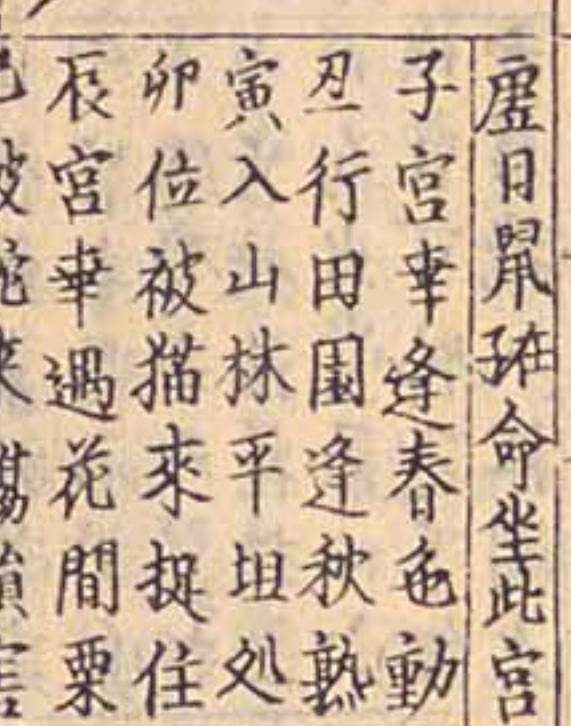 虚日鼠在子命坐此宮
子宮幸逢春色動
丑行田園逢秋熟
寅入山林平坦処
卯位被猫來捉住
辰宮幸遇花間粟